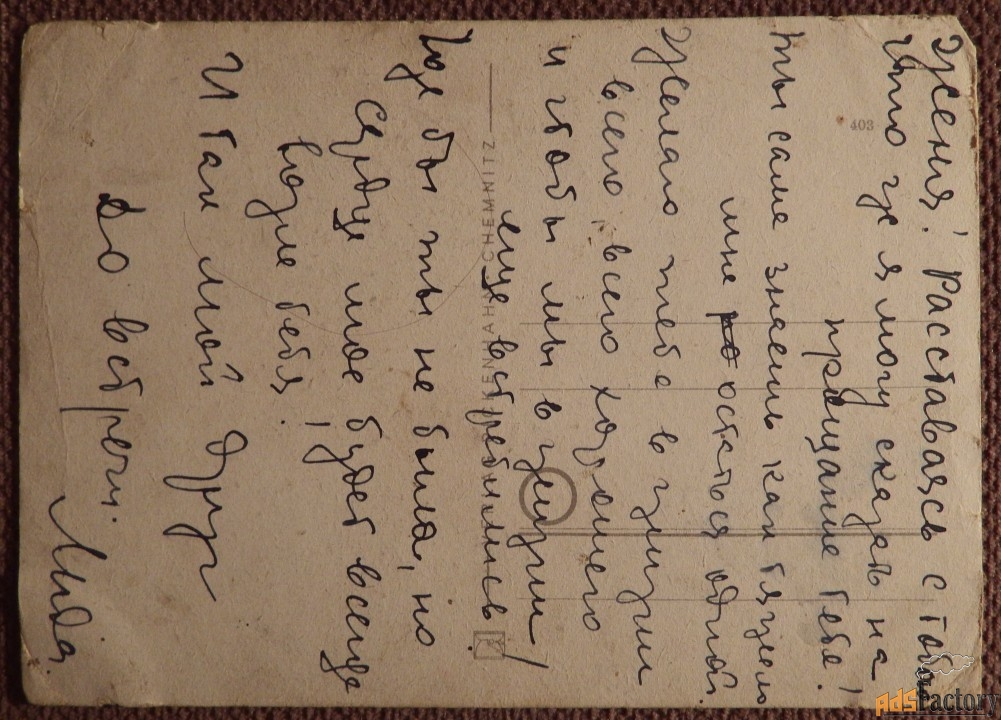 Женя! Расставаясь с тобой
что же я могу сказать на
прощание тебе!
ты сама знаешь как тяжело
мне остаться одной.
Желаю тебе в жизни
всего, всего хорошего
и чтобы мы в жизни
еще встретились!
Где бы ты не была, но
сердце мое будет всегда
возле тебя!
Итак мой друг
до встречи.
Лида.
403
CHEMNITZ
AdsFactory